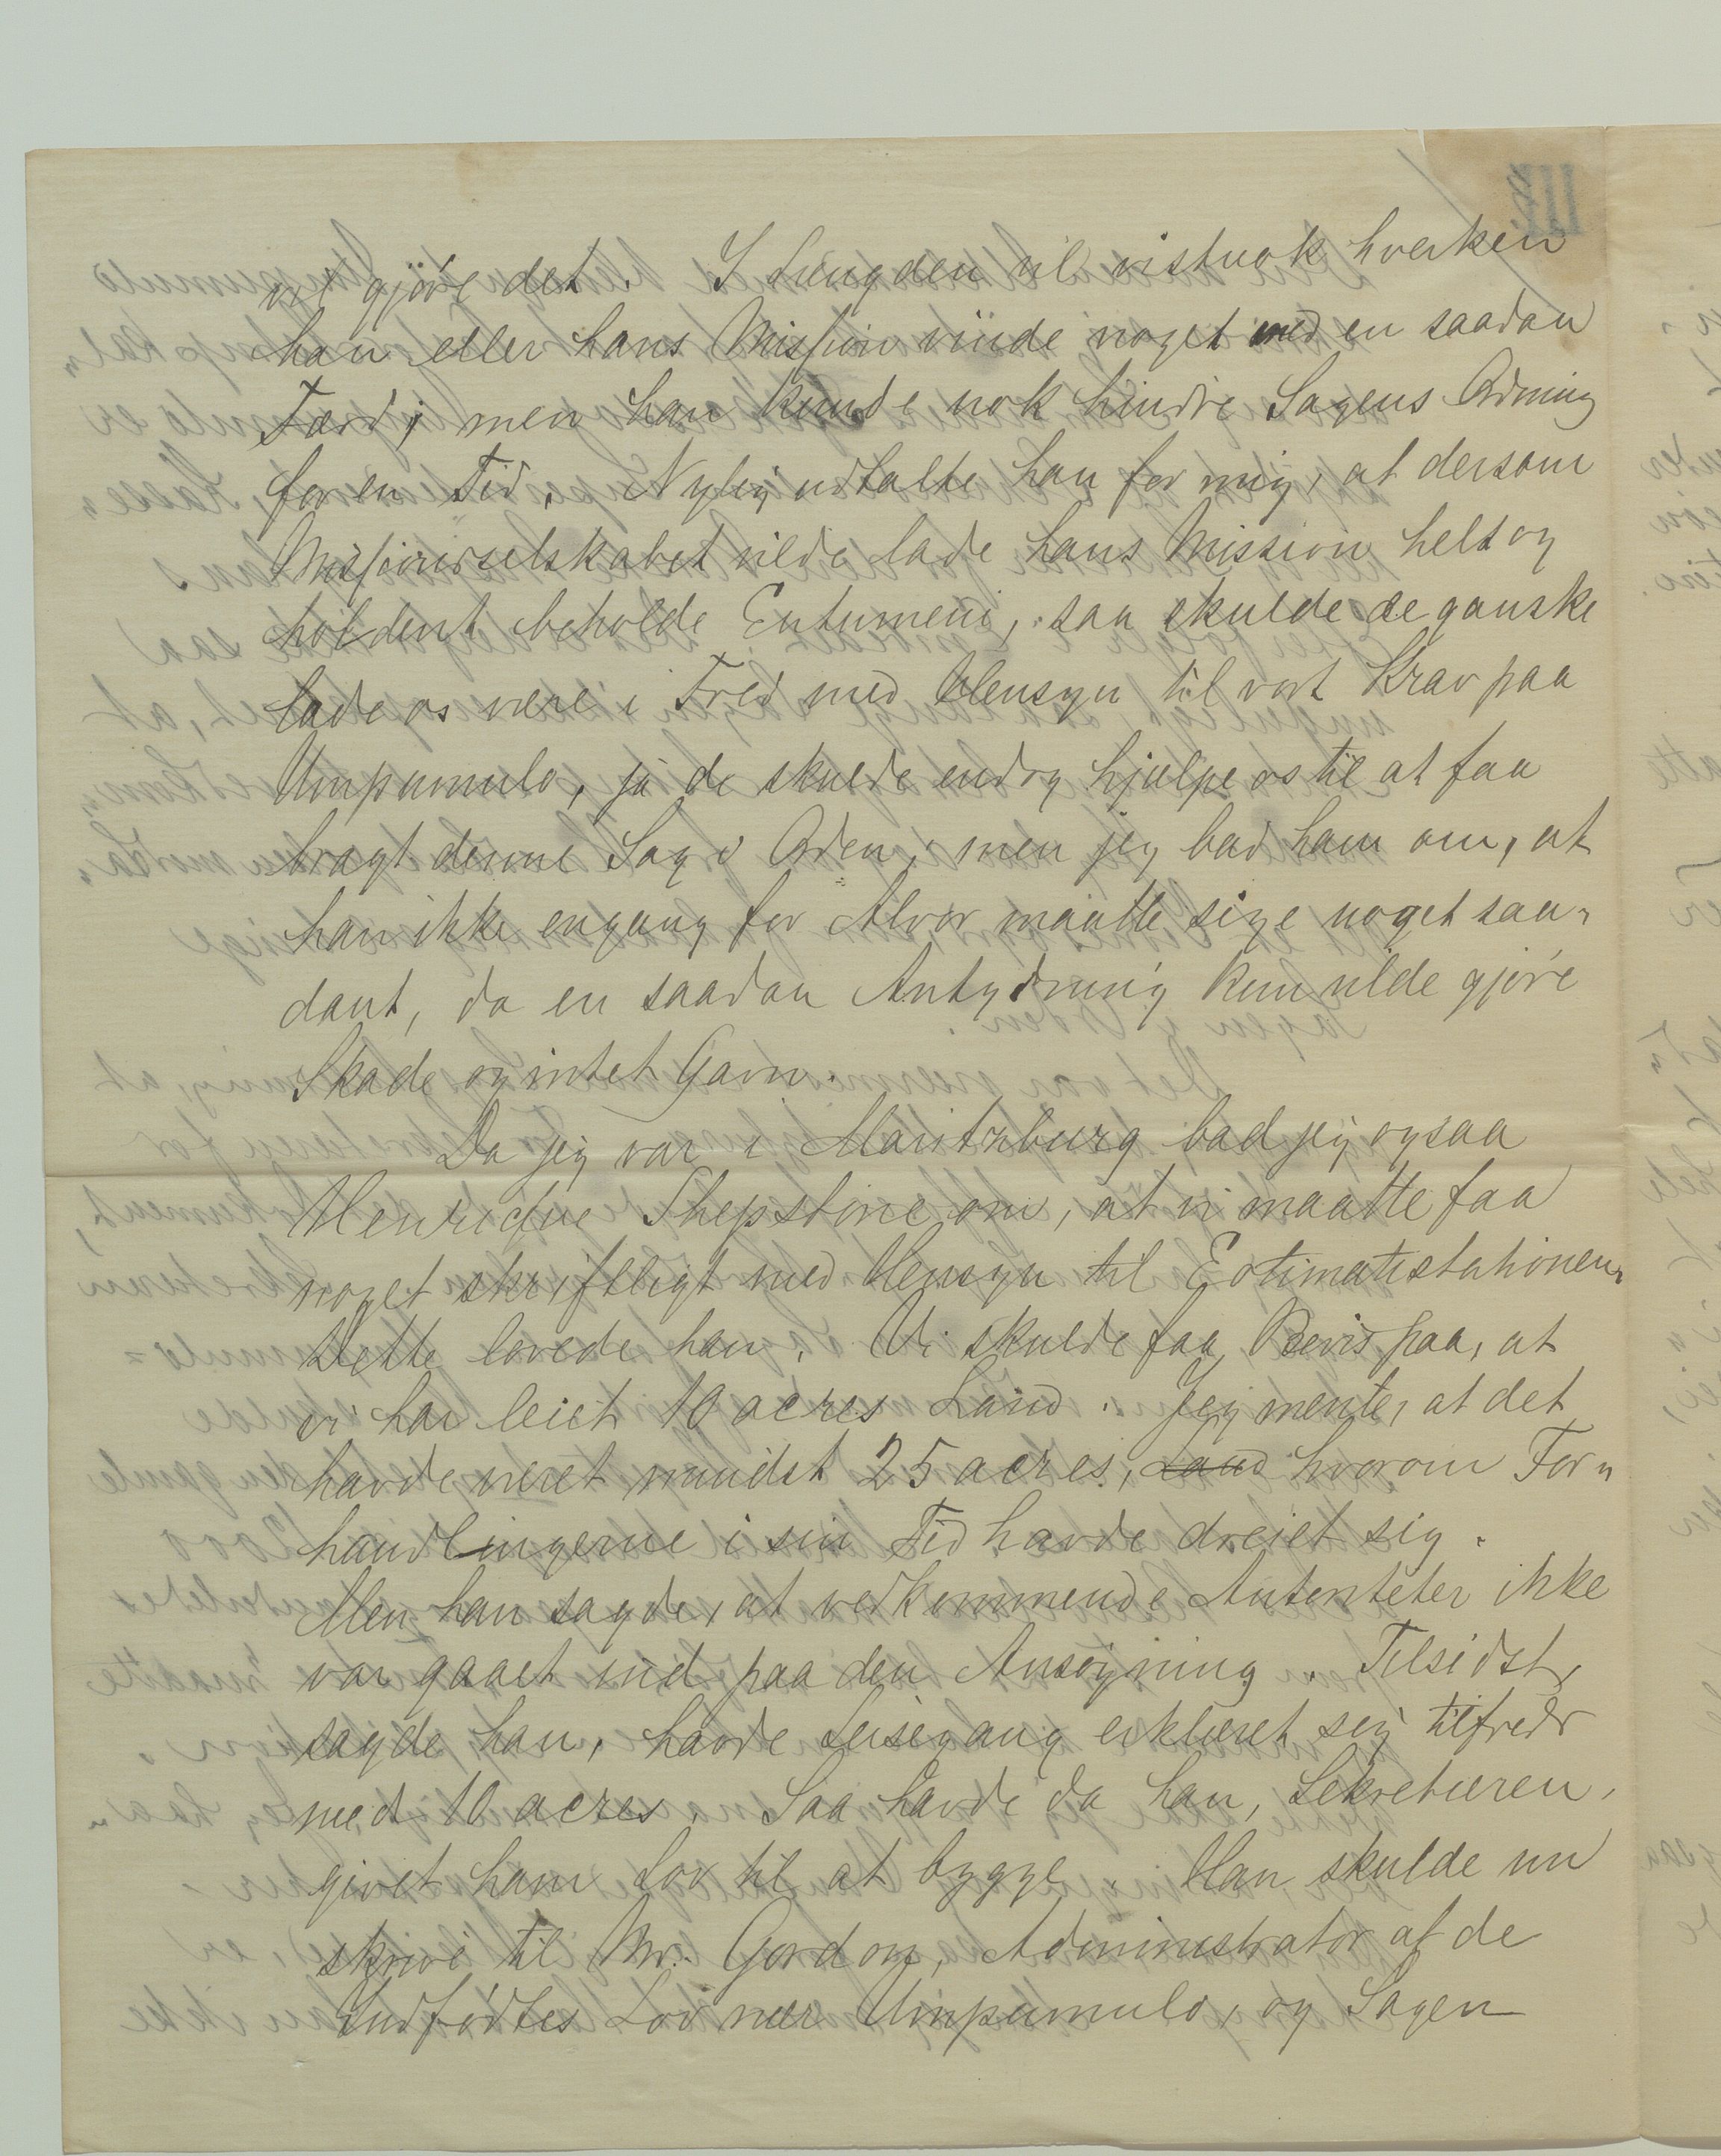 vil gjøre det. I Længden vil vistnok hverken
han eller hans Mission vinde noget med en saadan
Færd; men han kunde nok hindre Sagens Ordning
for en Tid. Nylig udtalte han for mig, at dersom
Missionsselskabet vilde lade hans Mission helt og
holdent beholde Entumeni, saa skulde de ganske
lade os være i Fred med Hensyn til vort Krav paa
Umpumulo, ja de skulde endog hjælpe os til at faa
bragt denne Sag i Orden; men jeg bad ham om, at
han ikke engang for Alvor maatte sige noget saa-
dant, da en saadan Antydning kun vilde gjøre
Skade og intet Gavn.
Da jeg var i Maritzburg bad jeg ogsaa
Henrique Shepstone om, at vi maatte faa
noget skriftligt med Hensyn til Eotimatistationen.
Dette lovede han. Vi skulde faa Bevis paa, at
vi har leiet 10 acres Land. Jeg mente, at det
havde været mindst 25 acres, Land hvorom For-
handlingerne i sin Tid havde dreiet sig.
Men han sagde, at vedkommende Autoriteter ikke
var gaaet ind paa den Ansøgning. Tilsidst,
sagde han, havde Leisegang erklæret sig tilfreds
med 10 acres. Saa havde da han, Sekretæren,
givet ham Lov til at bygge. Han skulde nu
skrive til Mr. Gordon, Administrator af de
Indfødtes Lov nær Umpumulo, og Sagen